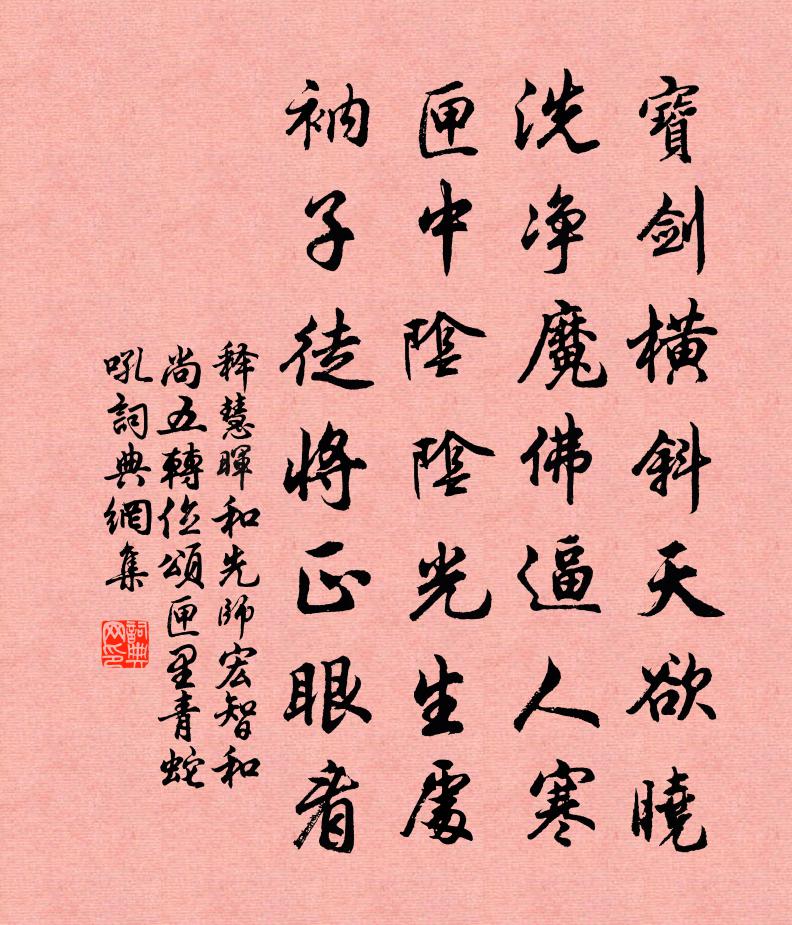 寶劍橫斜天欲曉
洗净魔佛逼人寒
匣中陰陰光生處
衲子徒將正眼看
释慧暉和先師宏智和
尚五轉位頌匣里青蛇
吼詞典網集
詞典网印